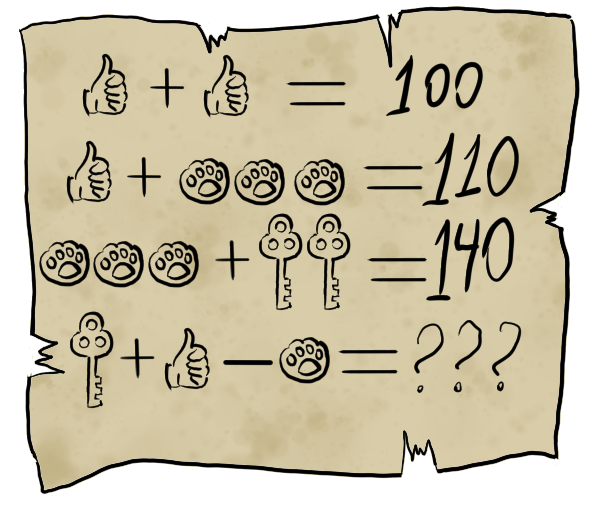 + = 100
+ = 110
+ = 140
+ — = ???